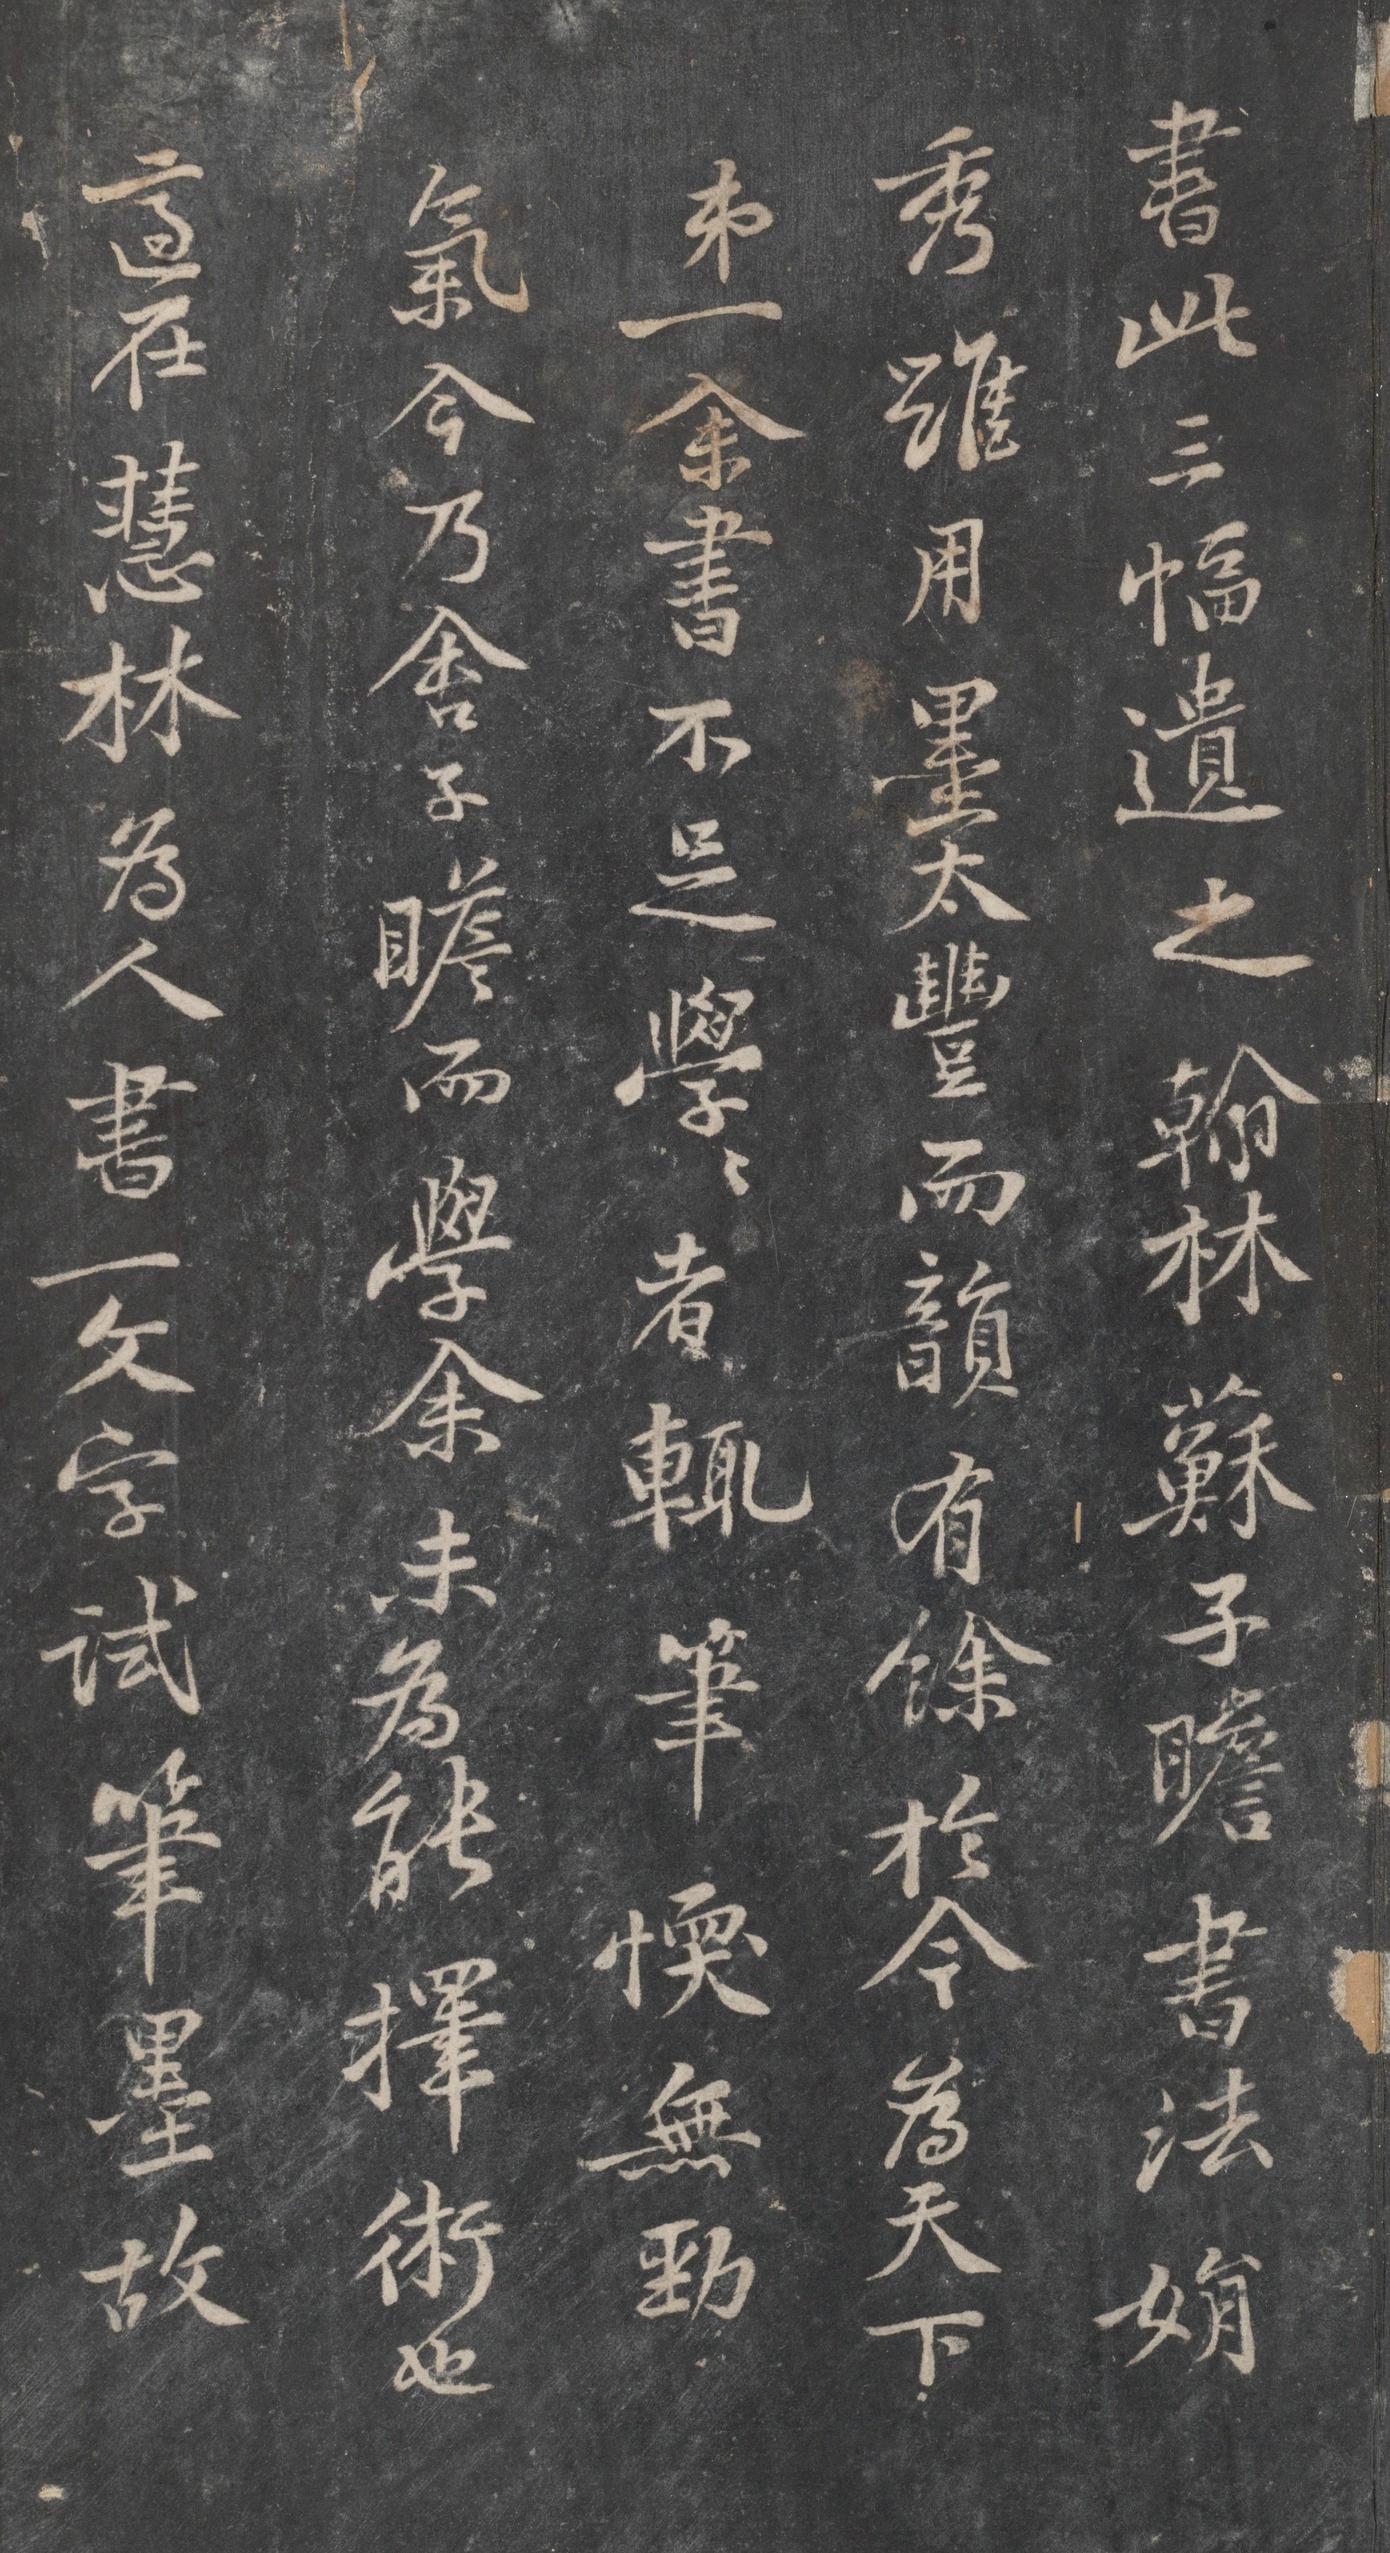 書此三幅遺之翰林蘇子瞻書法娟
秀雖用墨太豐而韻有餘於今為天下
弟一余書不足學〻者輒筆愞無勁
氣今乃舍子瞻而學余未為能擇術也
適在慧林為人書一文字試筆墨故